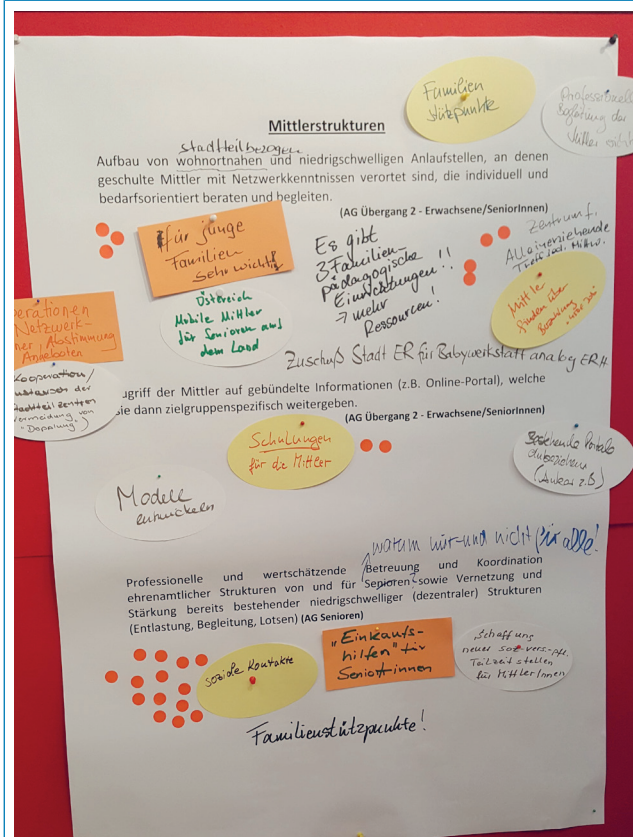 Familien
stützpunkte
Professionelle
Begleitung der
Mittlerstrukturen
stadtteilbezogen
Aufbau von wohnortnahen und niedrigschwelligen Anlaufstellen, an denen
geschulte Mittler mit Netzwerkkenntnissen verortet sind, die individuell und
bedarfsorientiert beraten und begleiten.
(AG Übergang 2 - Erwachsene/SeniorInnen)
für junge
Familien
sehr wichtig
Es gibt
3 Familien-
pädagogische
Einrichtungen!!
→ mehr
Ressourcen!
Zentrum f.
Alleinerziehende
Treff
Mittler
finden über
Österreich
Mobile Mittler
für Senioren auf
dem Land
perationen
Netzwerk-
ner, Abstimmung
Angeboten
Kooperation/
ustausch der
tadtteilzentren
ermeidung von
"Doppelung")
Zuschuß Stadt ER für Babywerkstatt analog ERH.
ugriff der Mittler auf gebündelte Informationen (z.B. Online-Portal), welche
ie dann zielgruppenspezifisch weitergeben.
(AG Übergang 2 - Erwachsene/SeniorInnen)
Schulungen
für die Mittler
Bestehende Portale
(Ankar z.B)
Modelle
entwickeln
warum nur und nicht für alle!
Professionelle und wertschätzende Betreuung und Koordination
ehrenamtlicher Strukturen von und für Senioren sowie Vernetzung und
Stärkung bereits bestehender niedrigschwelliger (dezentraler) Strukturen
(Entlastung, Begleitung, Lotsen) (AG Senioren)
soziale Kontakte
"Einkaufs-
hilfen" für
Seniorinnen
Schaffung
neuer soz.vers.-pfl.
Teilzeitstellen
für MittlerInnen
Familienstützpunkte!